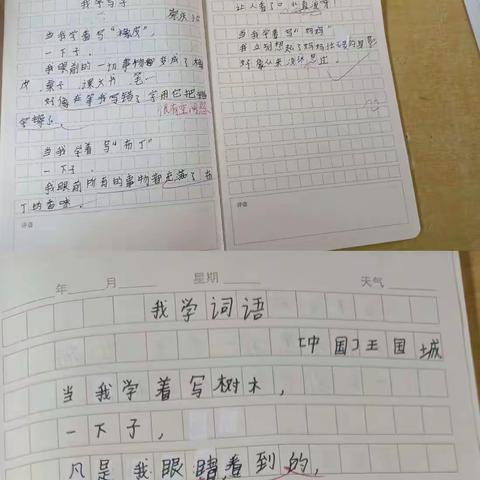 我学写字
当我学着写“橡皮”
一下子，
我眼前的一切事物都变成了橡
皮，桌子，课文书，笔…
好像在等我写错了字用它把错
字擦
很有空间感
当我学着写“布丁”
一下子，
我眼前所有的事物都充满了布
丁的香味。
评语
让人看了口水直流呀！
当我学着写“妈妈”
我立刻想起了妈妈
好像从来没
过。
评语
年 月 星期 天气
我学词语
【中国】王国城
当我学着写树木，
一下子，
凡是我眼睛看到的，